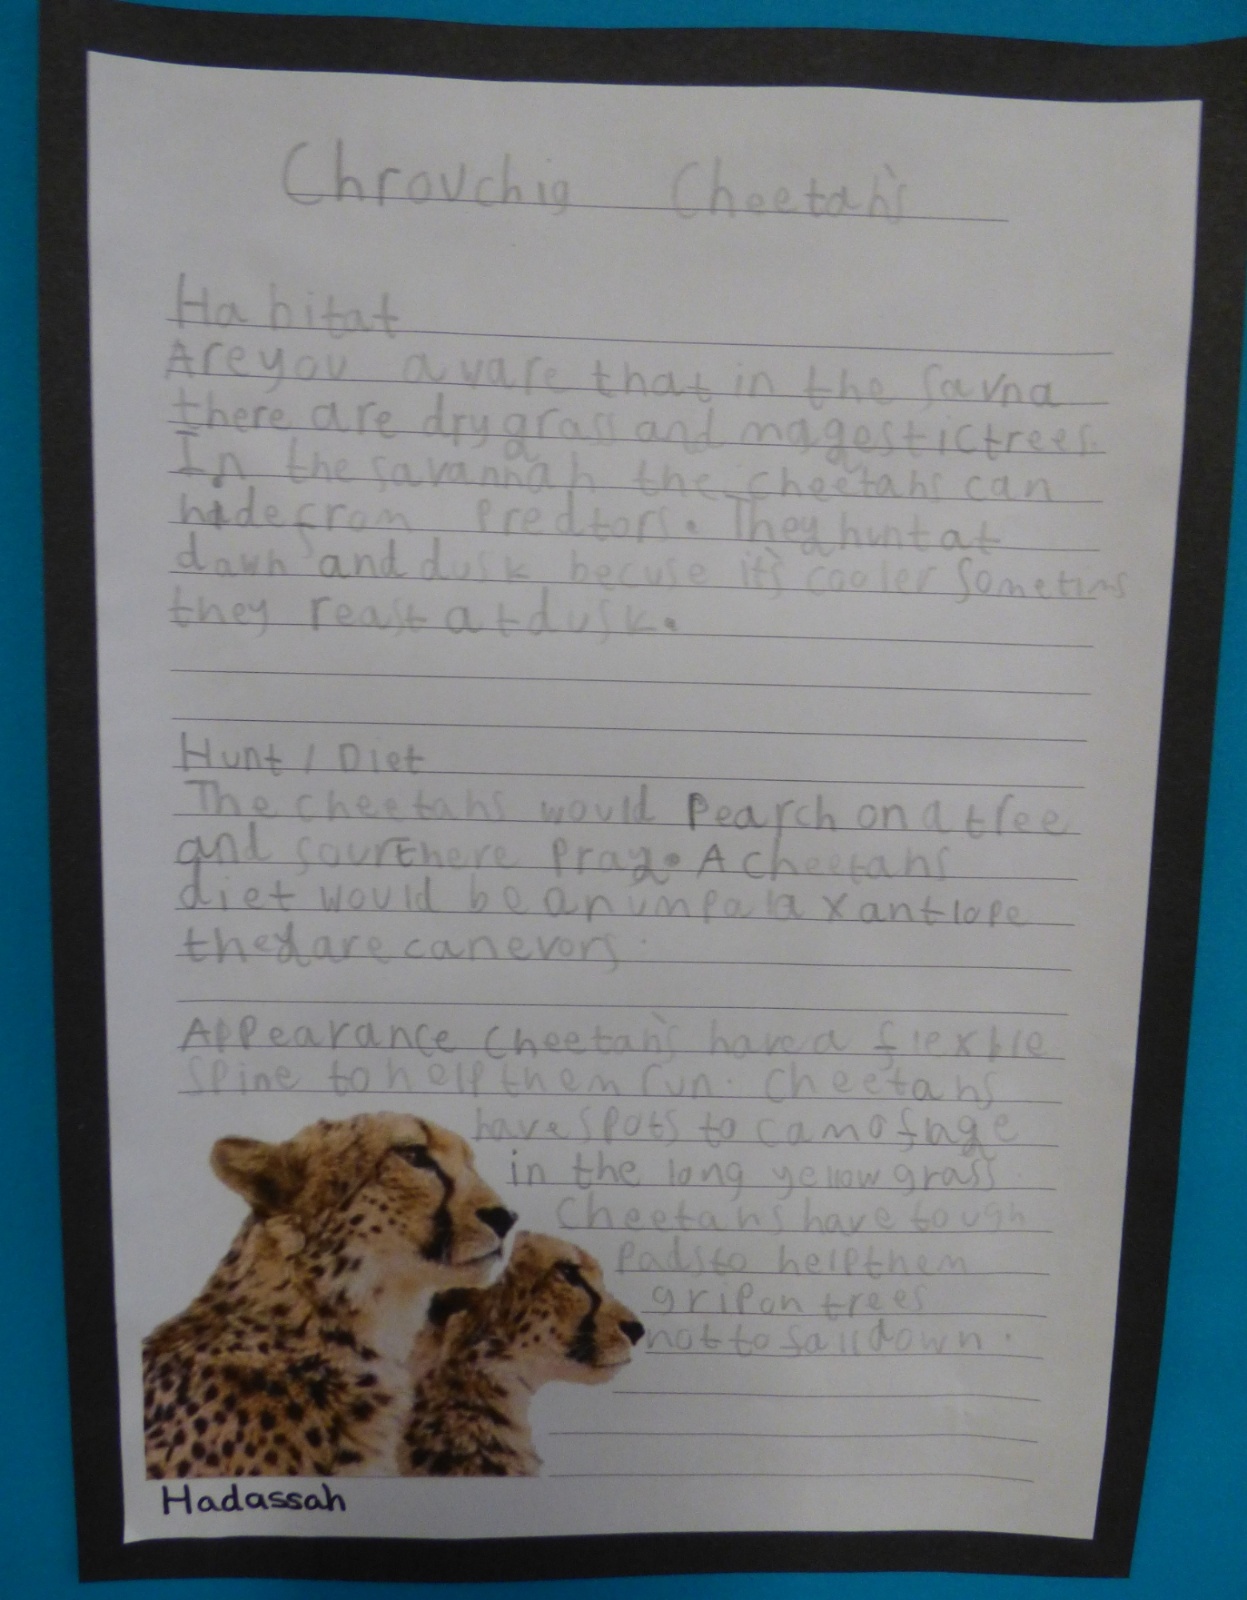 Chrouchig Cheetah's
Habitat
Are you aware that in the savna
there are dry grass and magestic trees.
In the savannah the cheetahs can
hide from Predtors. They hunt at
dawn and dusk becuse it's cooler Sometims
they reast at dusk.
Hunt / Diet
The cheetahs would Pearch on a tree
and sour there Pray. A cheetahs
diet would be an umpala x antlope
they are canevors.
Appearance Cheetah's have a flexble
Spine to help them run. Cheetahs
have spots to camofuge
in the long yellow grass
Cheetahs have tough
Pads to help them
grip on trees
not to fall down.
Hadassah